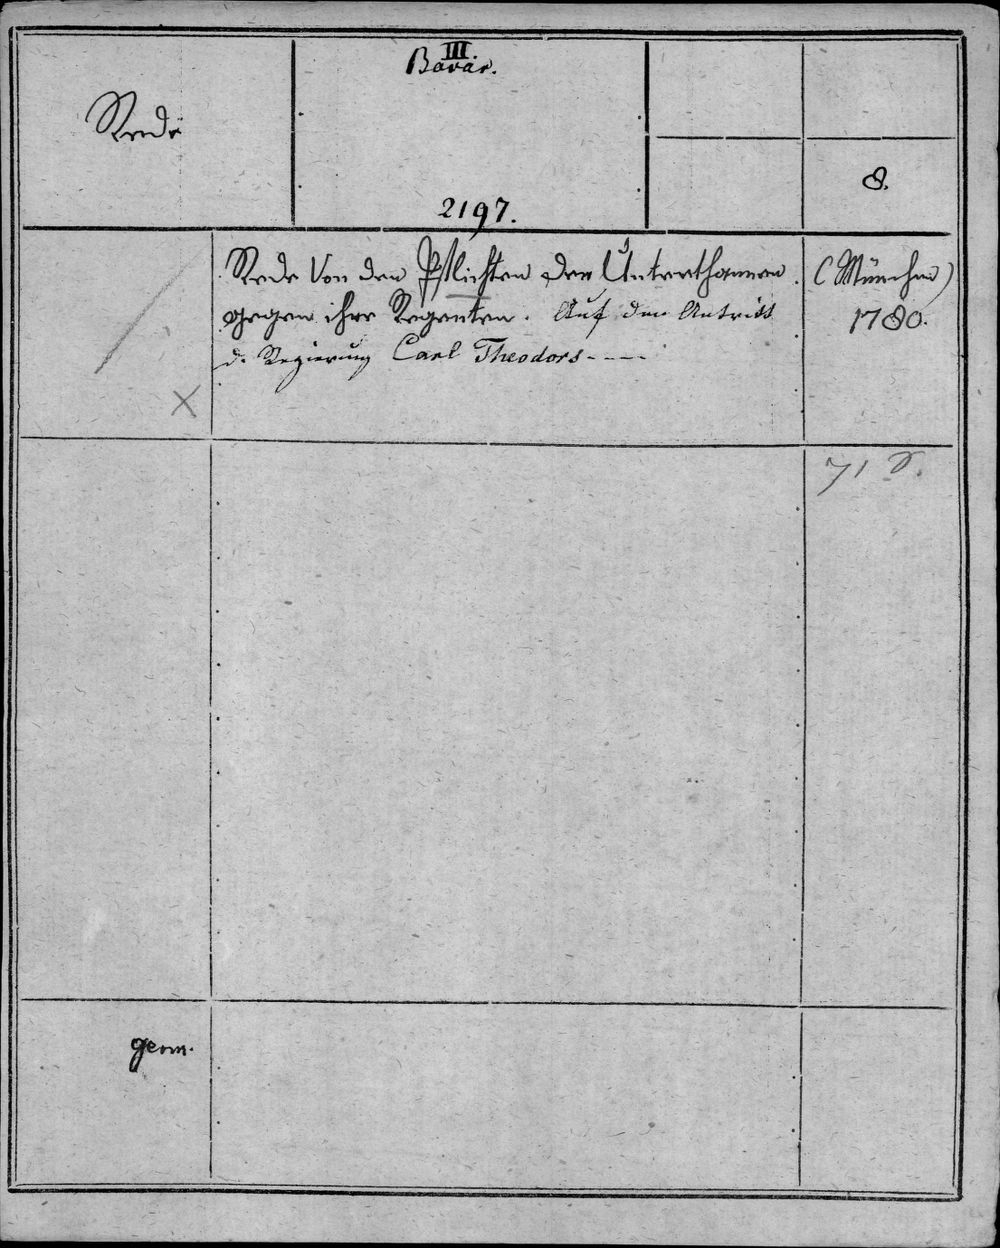 III
Bavar.
Rede
8.
2197.
Rede Von den Pflichten der Unterthannen
gegen ihre Regenten. Auf den Antritt
d. Regierung Carl Theodors - - - -
(München)
1780.
X
71 S.
germ.